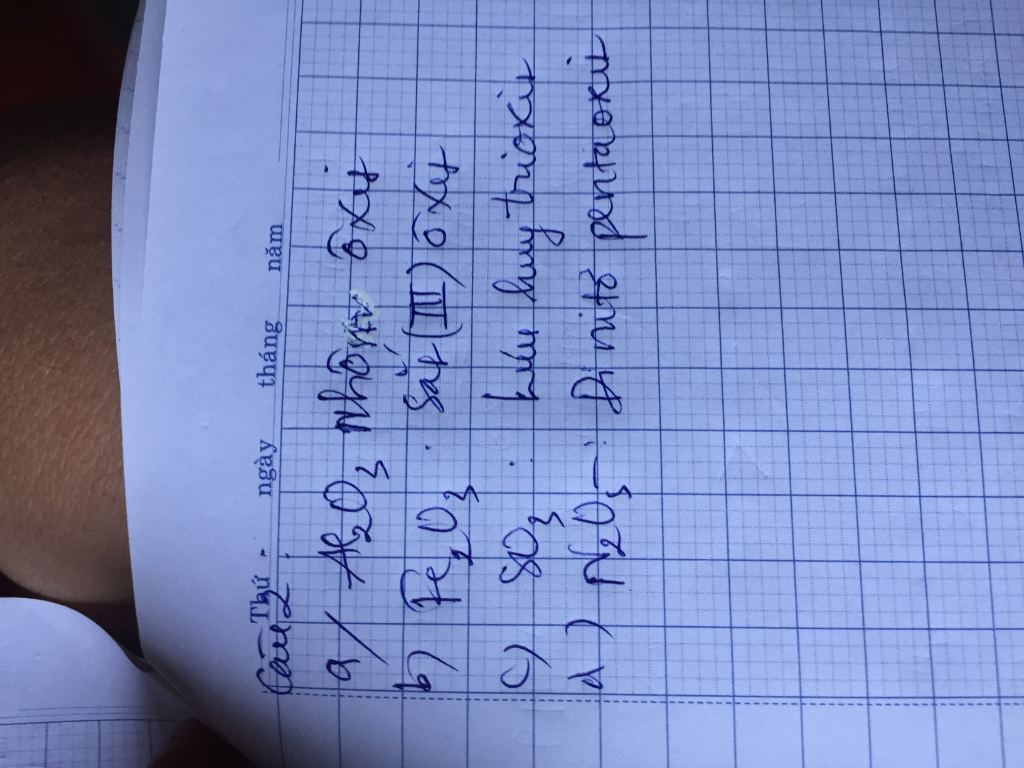 Thứ ngày tháng năm
Câu 2:
a/ Al2O3 Nhôm ôxit
b) Fe2O3 : Sắt (III) ôxit
c) SO3 : Lưu huỳnh trioxit
d) N2O5 : Đinitơ pentaoxit